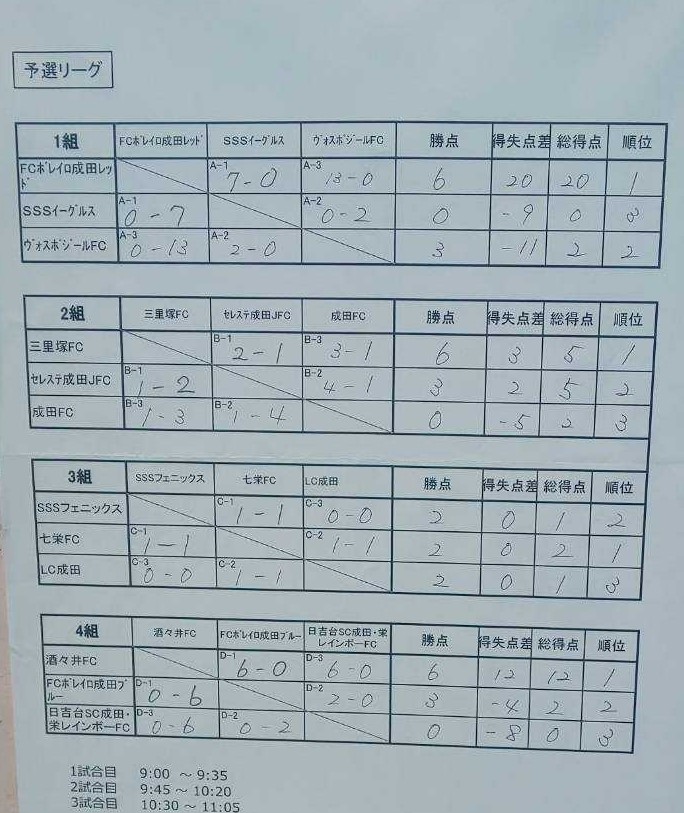 予選リーグ
1組 FCボレイロ成田レッド SSSイーグルス ヴォスボジールFC 勝点 得失点差 総得点 順位
FCボレイロ成田レッド A-1 7-0 A-3 13-0 6 20 20 1
SSSイーグルス A-1 0-7 A-2 0-2 0 -9 0 3
ヴォスボジールFC A-3 0-13 A-2 2-0 3 -11 2 2
2組 三里塚FC セレステ成田JFC 成田FC 勝点 得失点差 総得点 順位
三里塚FC B-1 2-1 B-3 3-1 6 3 5 1
セレステ成田JFC B-1 1-2 B-2 4-1 3 2 5 2
成田FC B-3 1-3 B-2 1-4 0 -5 2 3
3組 SSSフェニックス 七栄FC LC成田 勝点 得失点差 総得点 順位
SSSフェニックス C-1 1-1 C-3 0-0 2 0 1 2
七栄FC C-1 1-1 C-2 1-1 2 0 2 1
LC成田 C-3 0-0 C-2 1-1 2 0 1 3
4組 酒々井FC FCボレイロ成田ブルー 日吉台SC成田・栄レインボーFC 勝点 得失点差 総得点 順位
酒々井FC D-1 6-0 D-3 6-0 6 12 12 1
FCボレイロ成田ブルー D-1 0-6 D-2 2-0 3 -4 2 2
日吉台SC成田・栄レインボーFC D-3 0-6 D-2 0-2 0 -8 0 3
1試合目 9:00 ～ 9:35
2試合目 9:45 ～ 10:20
3試合目 10:30 ～ 11:05